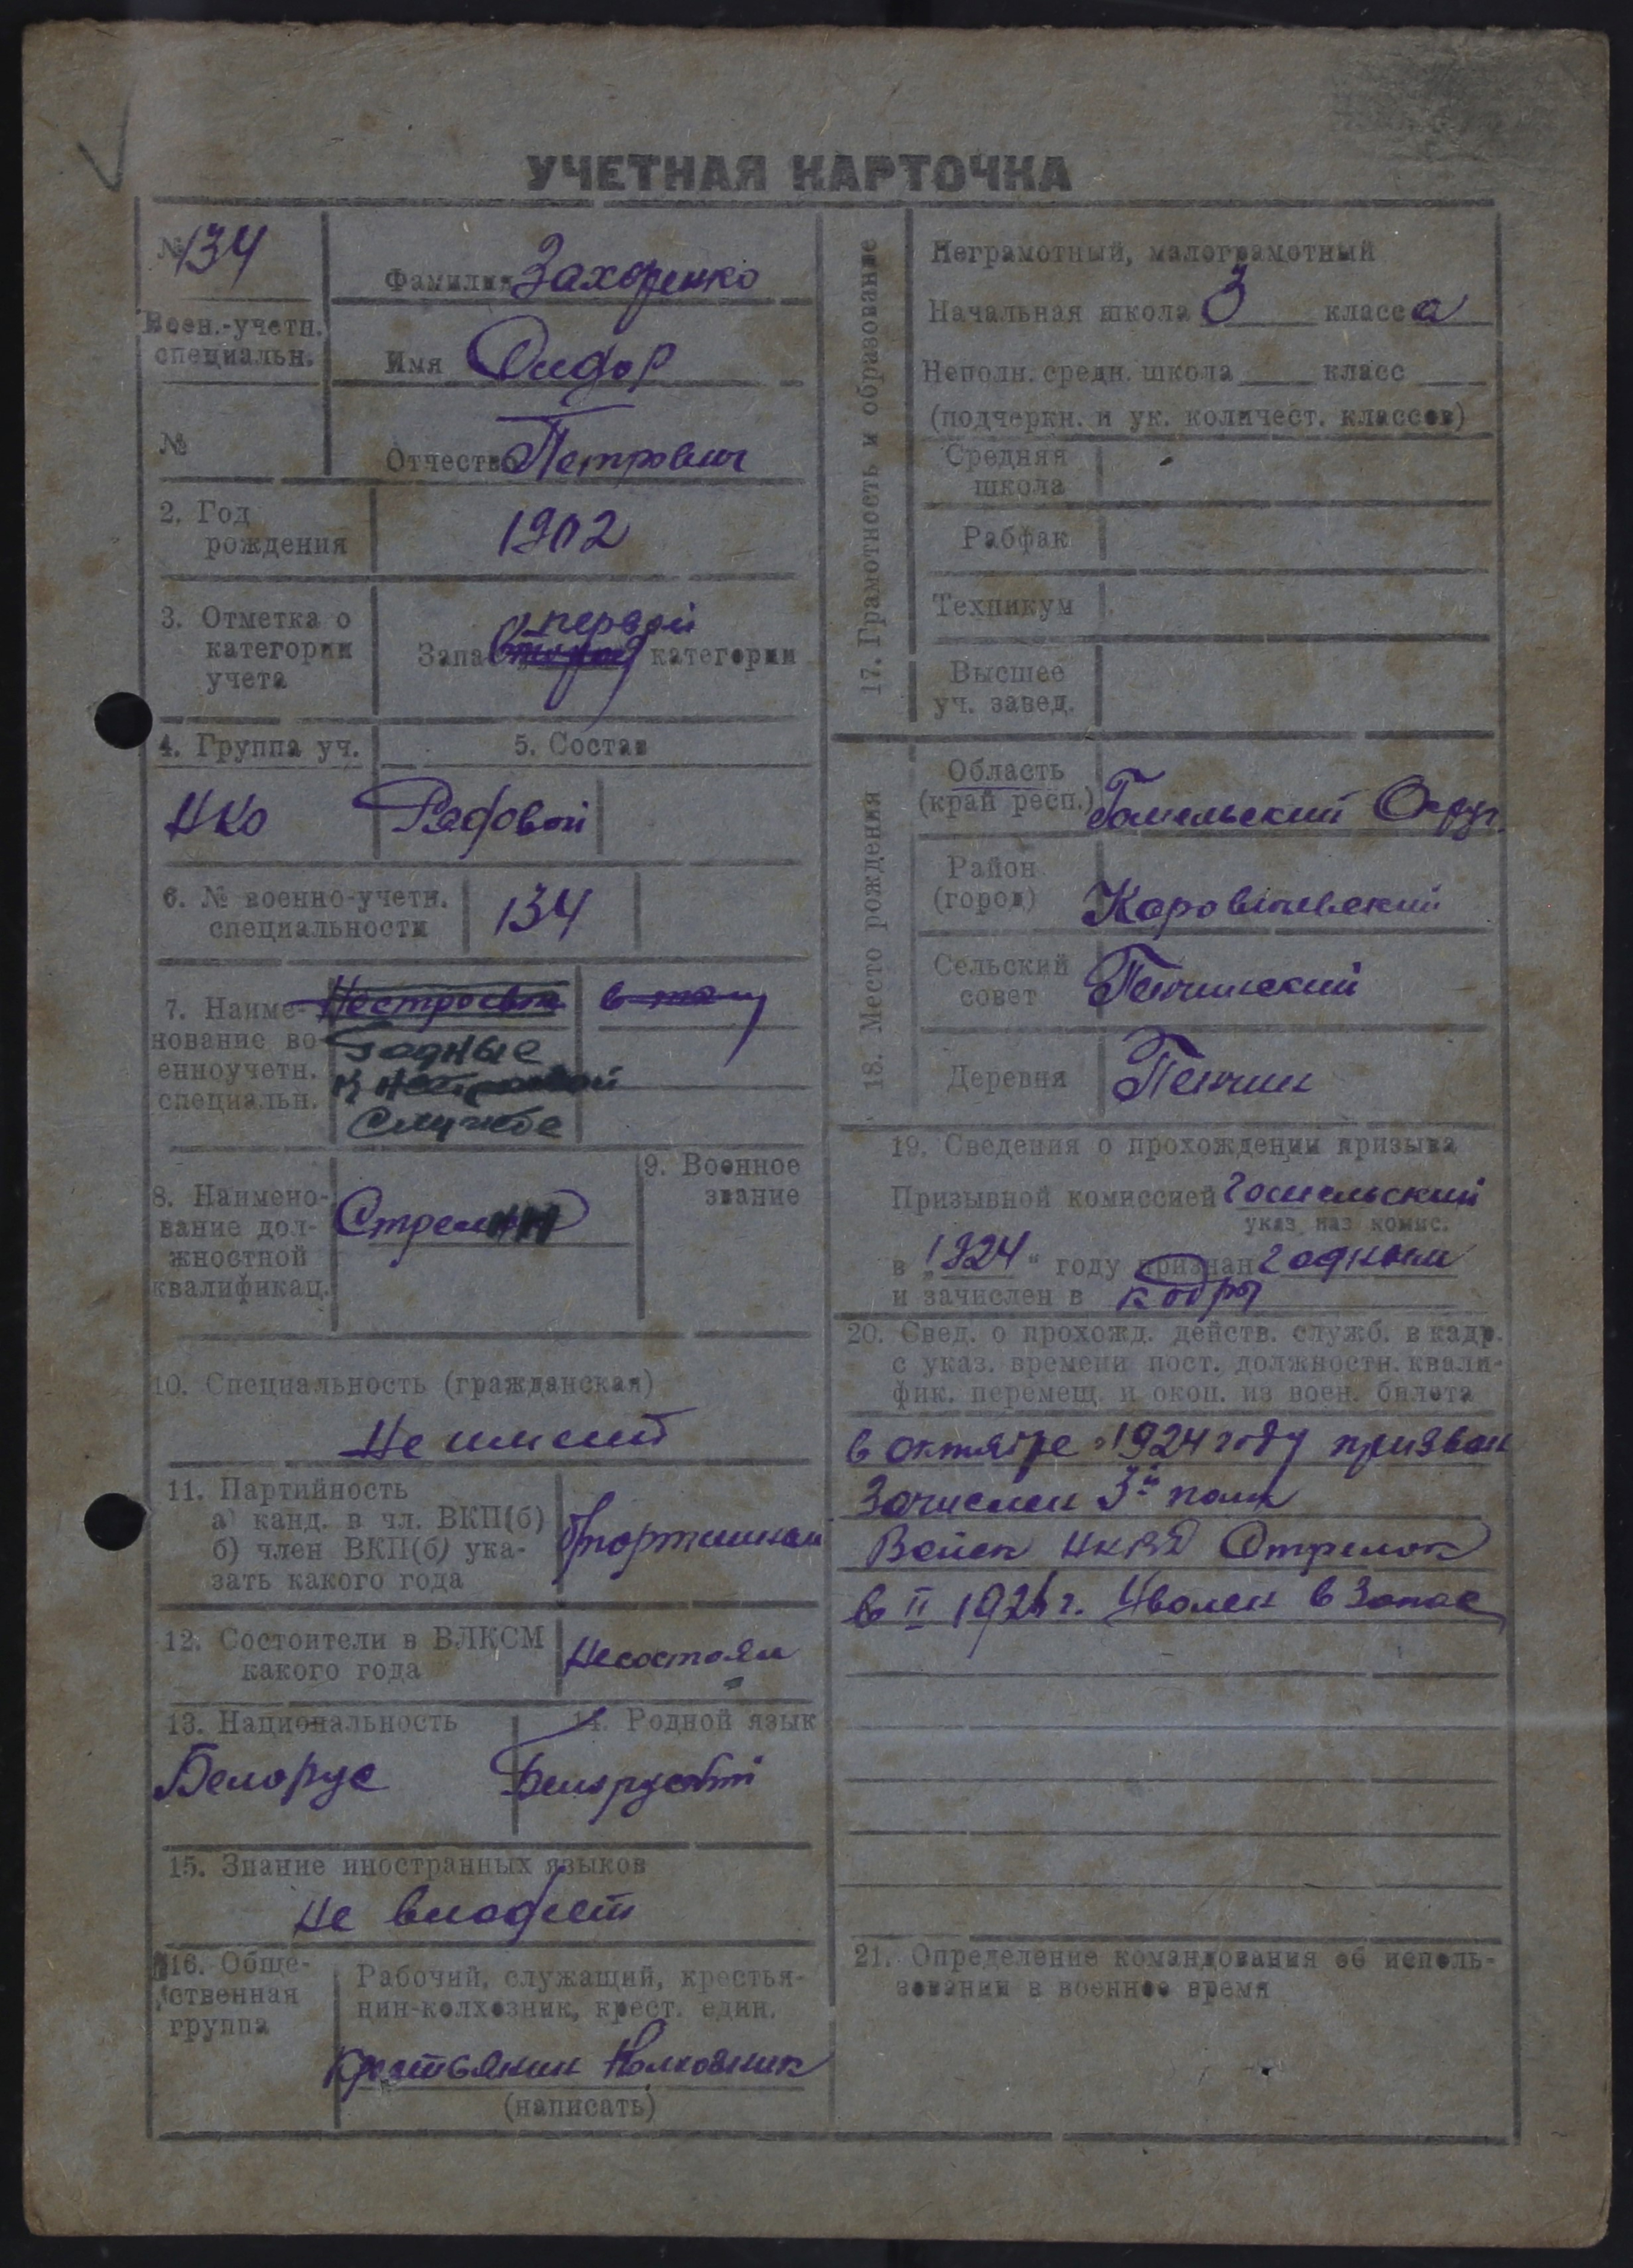 УЧЕТНАЯ КАРТОЧКА
№ 134
Фамилия Захоренко
Воен.-учетн.
специальн.
Имя Сидор
№
Отчество Петрович
2. Год
рождения
1902
3. Отметка о
категории
учета
первой
Запас второй категории
4. Группа уч.
5. Состав
НКО
Рядовой
6. № военно-учетн.
специальности
134
7. Наиме-
нование во-
енноучетн.
специальн.
Годные
к нестроевой
Службе
8. Наимено-
вание дол-
жностной
квалификац.
9. Военное
звание
10. Специальность (гражданская)
Не имеит
11. Партийность
а) канд. в чл. ВКП(б)
б) член ВКП(б) ука-
зать какого года
12. Состоители в ВЛКСМ
какого года
Несостоял
13. Национальность
14. Родной язык
Белорус
15. Знание иностранных языков
Не владеет
16. Обще-
ственная
группа
Рабочий, служащий, крестья-
нин-колхозник, крест. един.
Крестьянин Колхозник
(написать)
17. Грамотность и образование
Неграмотный, малограмотный
Начальная школа 3 класса
Неполн. средн. школа класс
(подчеркн. и ук. количест. классов)
Средняя
школа
Рабфак
Техникум
Высшее
уч. завед.
18. Место рождения
Область
(край респ.)
Гомельский Округ
Район
(город)
Сельский
совет
Деревня
19. Сведения о прохождении призыва
Призывной комиссией Гомельский
указ. наз. комис.
в „1924“ году признан годным
и зачислен в кадры
20. Свед. о прохожд. действ. служб. в кадр.
с указ. времени пост. должностн. квали-
фик. перемещ. и окон. из воен. билета
в октябре 1924 году призван
Зачислен 3й полк
Войск НКВД Стрелок
в II 1926 г. Уволен в Запас
21. Определение командования об исполь-
зовании в военное время